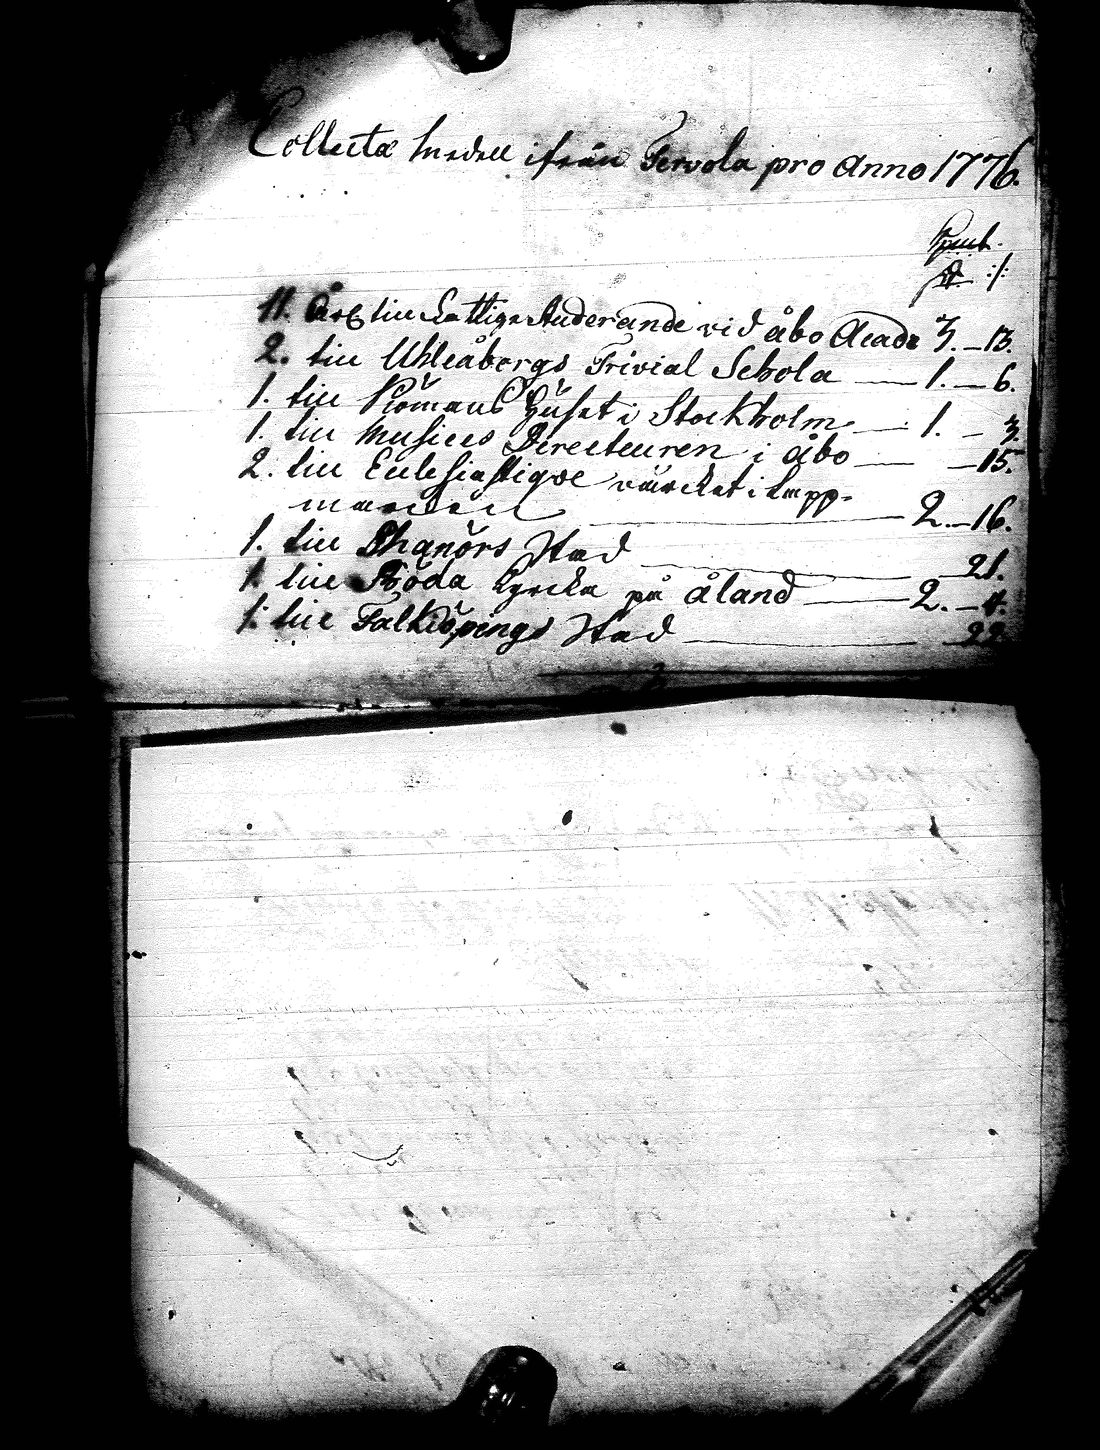 Collectæ medell ifrån Tervola pro Anno 1776.
11. till Fattige Studerande vid åbo Acade 3. – 13.
2. till Uhleåborgs Trivial Schola — 1. – 6.
1. till Siömans Huset i Stockholm — 1. – 3.
1. till Musices Directeuren i åbo — – 15.
2. till Ecclesiastique värcket i Lapp-
marcken — 2. – 16.
1. till Skanörs Stad — 21.
1. till Kyrcka på åland — 2. – 4.
1. till Falkiöpings Stad — 22.